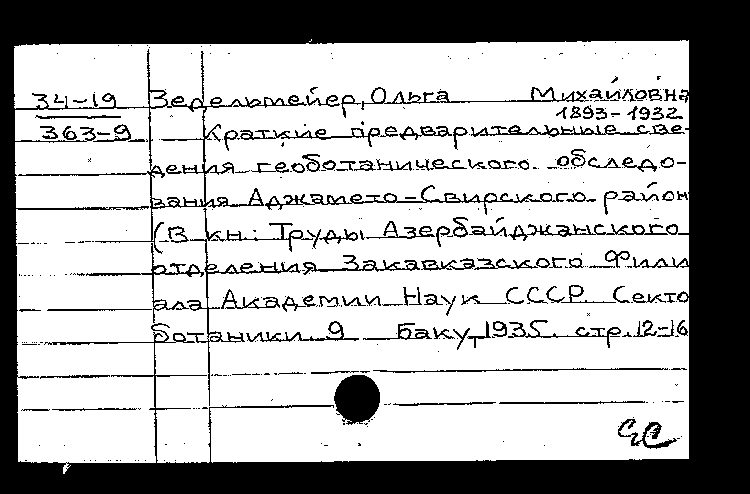 34-19 Зедельмейер, Ольга Михайловна
1893-1932
363-9 Краткие предварительные све-
дения геоботанического обследо-
вания Аджамето-Свирского район
(В кн.: Труды Азербайджанского
отделения Закавказского Фили
ала Академии Наук СССР. Секто
ботаники. 9 Баку, 1935. стр. 12-16